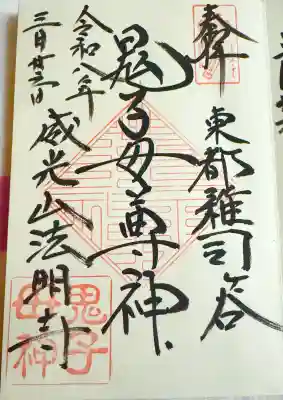 奉拝
東都雑司谷
鬼子母尊神
令和八年
三月廿三日
威光山法明寺
鬼子
母神